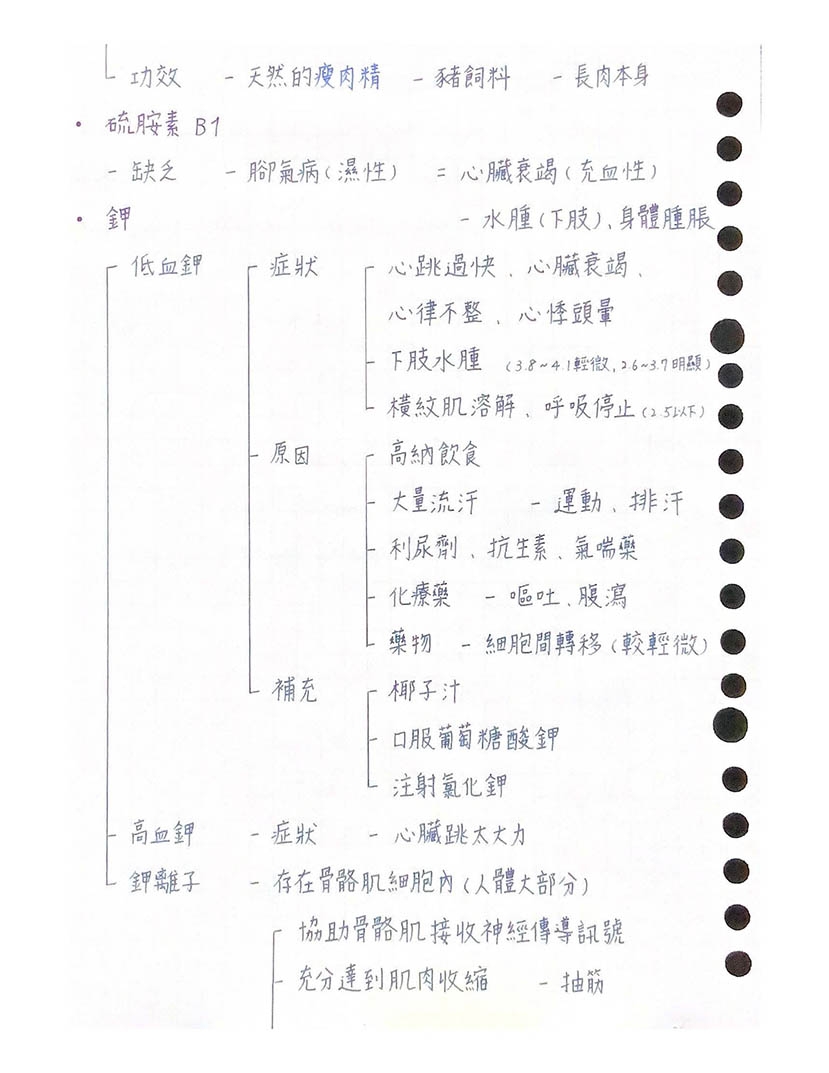 功效 - 天然的瘦肉精 - 豬飼料 - 長肉本身
• 硫胺素 B1
- 缺乏 - 腳氣病(濕性) = 心臟衰竭(充血性)
• 鉀 - 水腫(下肢)、身體腫脹
低血鉀 - 症狀 心跳過快、心臟衰竭、
心律不整、心悸頭暈
- 下肢水腫 (3.8~4.1輕微,2.6~3.7明顯)
- 橫紋肌溶解、呼吸停止(2.5以下)
- 原因 高納飲食
- 大量流汗 - 運動、排汗
- 利尿劑、抗生素、氣喘藥
- 化療藥 - 嘔吐、腹瀉
- 藥物 - 細胞間轉移(較輕微)
補充 椰子汁
- 口服葡萄糖酸鉀
注射氯化鉀
- 高血鉀 - 症狀 - 心臟跳太大力
鉀離子 - 存在骨骼肌細胞內(人體大部分)
協助骨骼肌接收神經傳導訊號
- 充分達到肌肉收縮 - 抽筋